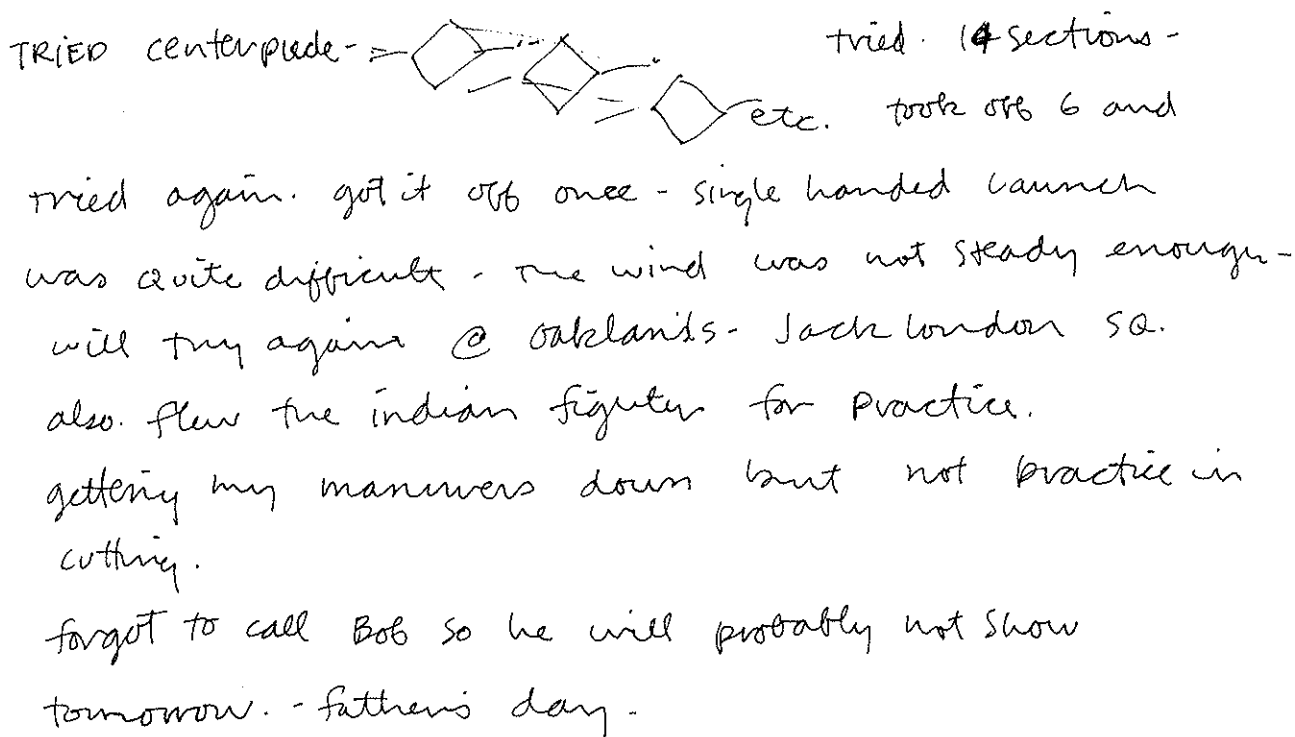 TRIED centerpiede - etc. tried. 14 sections -
took off 6 and
tried again. got it off once - single handed launch
was quite difficult - the wind was not steady enough -
will try again @ oaklands - Jack london SQ.
also. flew the indian fighter for practice.
getting my manuvers down but not practice in
cutting.
forgot to call Bob so he will probably not show
tomorrow. - father's day -